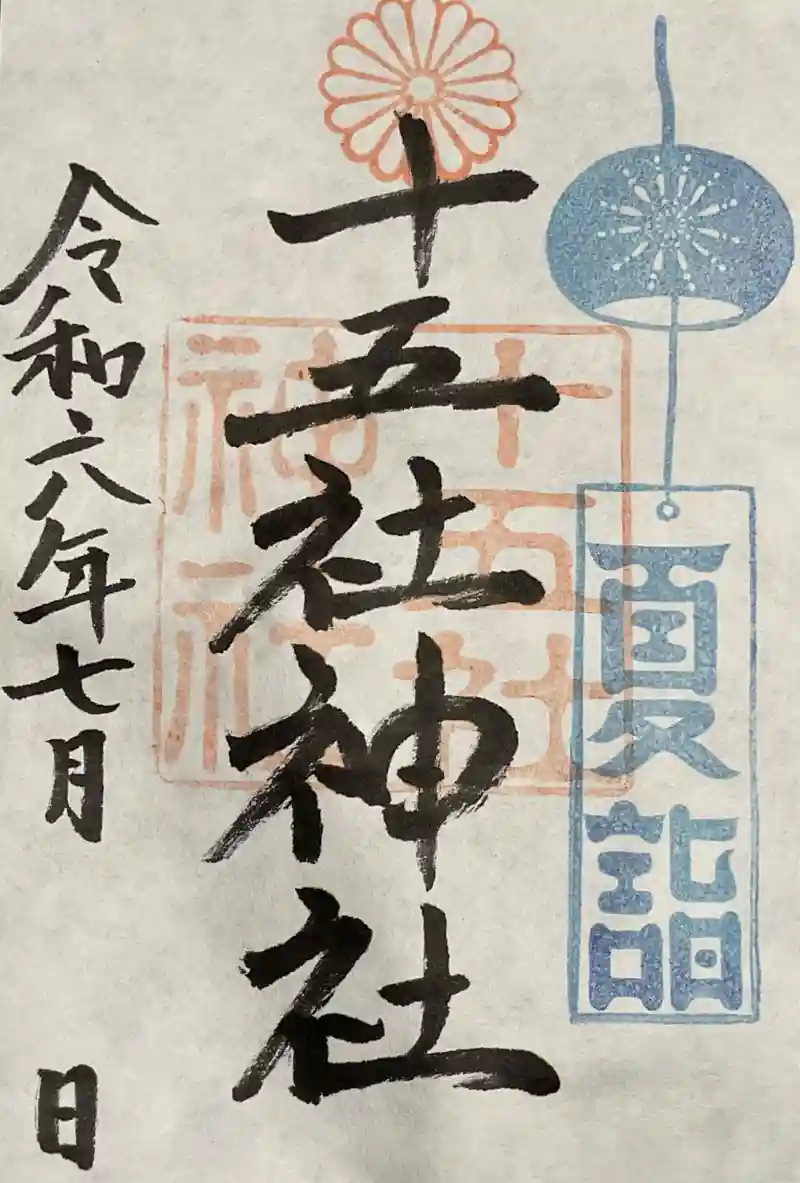 夏詣
十五社神社
十五社
神社
令和六年七月
日